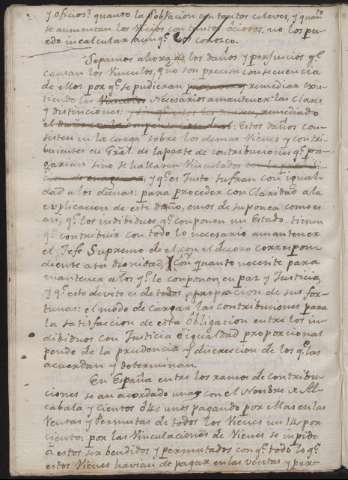 y oficios? quanto la Poblacion con tantos celoves, y quan
se aumentan los vicios con tantos ociosos, no los pu
edo incalcular aunq.e los conosco.
Sepamos ahora q.e los daños y perjuicios q.e
causan los Vinculos, q.e son precisa consecuencia
de ellos por q.e se pudieran y remediar exis
tiendo los Vinculos Necesarios a mantener las clases
y distinciones;
Estos daños con
sisten en la carga sobre los demas Vienes y contri
buientes en Gral. de la parte de Contribuciones q.e pa-
garian sino se hallaren Vinculados
y q.e es Justo sufran con igual-
dad a los demas: para proceder con claridad a la
explicacion de este daño, emos de suponer como es
asi, q.e los individuos q.e componen un Estado tienen
q.e contribuir con todo lo necesario a mantener
el Jefe Supremo de el con el decoro correspon
diente a su dignidad, y con quanto necesite para
mantener a los q.e le componen en paz y Justicia,
y q.e esto devito es de todos a proporcion de sus for-
tunas: el modo de cargar las contribuciones para
la satisfaccion de esta obligacion entre los in
dibiduos con Justicia e igualdad proporcional
pende de la prudencia y discrecion de los q.e las
acuerdan y determinan.
En España entre los ramos de contribu-
ciones se an acordado unas con el Nombre de Al-
cabala y cientos
pagando por ellas en las
Ventas y Permutas de todos los Vienes un 14 por
ciento; por las Vinculaciones de Vienes se inpide
a estos ser bendidos y permutados con q.e todo lo q.e
estos Vienes havian de pagar en las ventas y per-